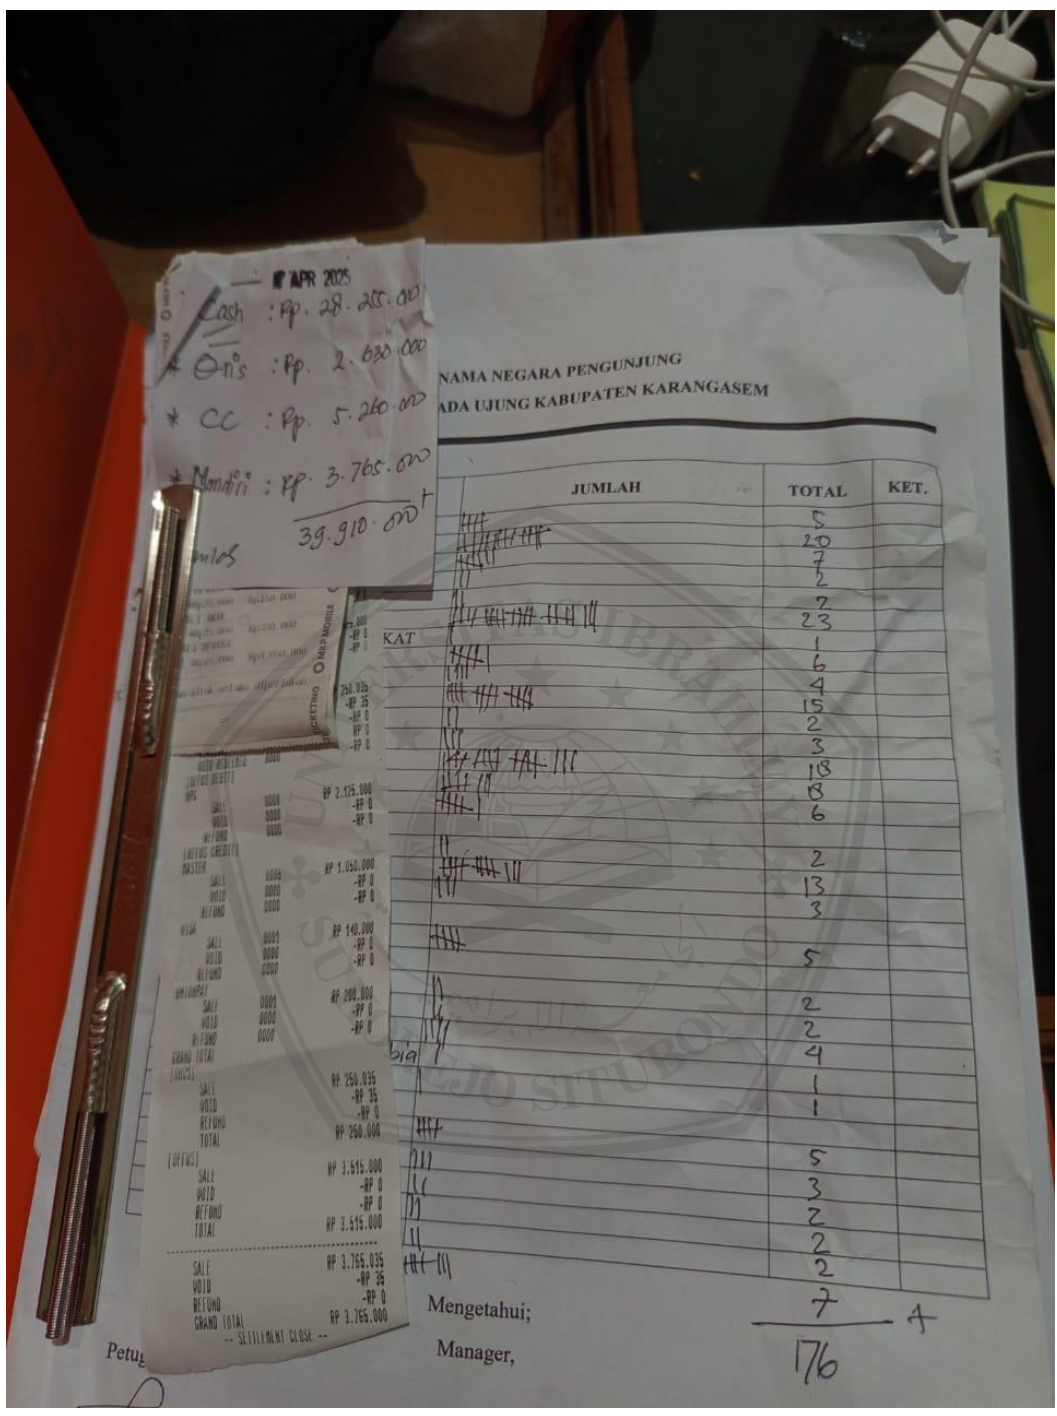 APR 2025
Cash : Rp. 28.255.000
* Qris : Rp. 2.630.000
* CC : Rp. 5.260.000
* Mandiri : Rp. 3.765.000
39.910.000 +
NAMA NEGARA PENGUNJUNG
ADA UJUNG KABUPATEN KARANGASEM
JUMLAH TOTAL KET.
5
20
7
2
2
23
KAT 1
6
4
15
2
3
18
8
6
2
13
3
5
2
2
4
bia 1
1
5
3
2
2
2
7 +
176
Mengetahui;
Manager,
MKP MOBILE
250.035
-RP 35
-RP 0
RP 0
-RP 0
SALE 0008 RP 2.125.000
VOID 0000 -RP 0
REFUND 0000 -RP 0
[OFFUS CREDIT]
MASTER
SALE 0006 RP 1.050.000
VOID 0000 -RP 0
REFUND 0000 -RP 0
VISA
SALE 0001 RP 140.000
VOID 0000 -RP 0
REFUND 0000 -RP 0
UNIONPAY
SALE 0001 RP 200.000
VOID 0000 -RP 0
REFUND 0000 -RP 0
GRAND TOTAL
[ONUS]
SALE RP 250.035
VOID -RP 35
REFUND -RP 0
TOTAL RP 250.000
[OFFUS]
SALE RP 3.515.000
VOID -RP 0
REFUND -RP 0
TOTAL RP 3.515.000
SALE RP 3.765.035
VOID -RP 35
REFUND -RP 0
GRAND TOTAL RP 3.765.000
-- SETTLEMENT CLOSE --
Petug
UNIVERSITAS IBRAHIMY
SUKOREJO SITUBONDO